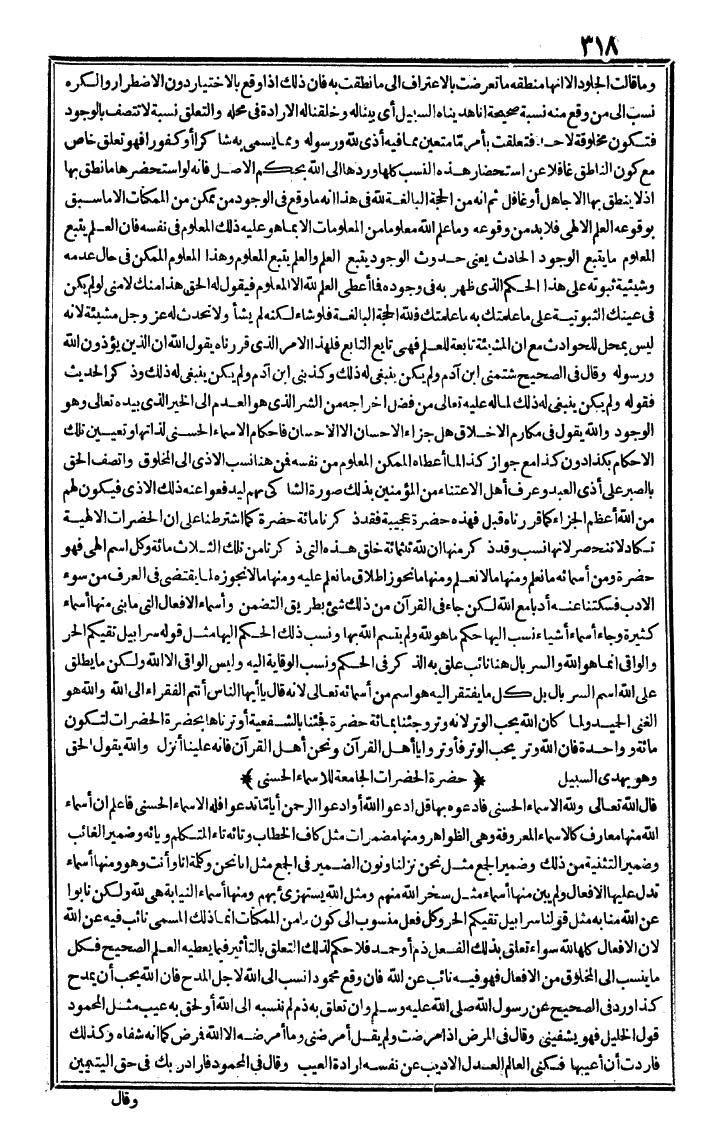 ٣١٨
وما قالت الجلود الا انها منطقه ما تعرضت بالاعتراف الى ما نطقت به فان ذلك اذا وقع بالاختيار دون الاضطرار والكره
نسب الى من وقع منه نسبة صحيحة انا هديناه السبيل أى بيناله وخلقنا له الارادة فى محله والتعلق نسبة لا تتصف بالوجود
فتكون مخلوقة لاحد فتعلقت بأمر ما متعين مما فيه أذى لله ورسوله ومما يسمى به شاكرا أو كفورا فهو تعلق خاص
مع كون الناطق غافلا عن استحضار هذه النسب كلها وردها الى الله بحكم الاصل فانه لو استحضرها ما نطق بها
اذ لا ينطق بها الا جاهل أو غافل ثم انه من الحجة البالغة لله فى هذا انه ما وقع فى الوجود من ممكن من الممكنات الا ما سبق
بوقوعه العلم الالهى فلابد من وقوعه وما علم الله معلوما من المعلومات الا بما هو عليه ذلك المعلوم فى نفسه فان العلم يتبع
المعلوم ما يتبع الوجود الحادث يعنى حدوث الوجود يتبع العلم والعلم يتبع المعلوم وهذا المعلوم الممكن فى حال عدمه
وشيئية ثبوته على هذا الحكم الذى ظهر به فى وجوده فما أعطى العلم لله الا المعلوم فيقول له الحق هذا منك لا منى لو لم يكن
فى عينك الثبوتية على ما علمتك به ما علمتك فلله الحجة البالغة فلو شاء لكنه لم يشأ ولا تحدث له عز وجل مشيئة لانه
ليس بمحل للحوادث مع ان المشيئة تابعة للعلم فهى تابع التابع فلهذا الامر الذى قررناه يقول الله ان الذين يؤذون الله
ورسوله وقال فى الصحيح شتمنى ابن آدم ولم يكن ينبغى له ذلك وكذبنى ابن آدم ولم يكن ينبغى له ذلك وذكر الحديث
فقوله ولم يكن ينبغى له ذلك لما له عليه تعالى من فضل اخراجه من الشر الذى هو العدم الى الخير الذى بيده تعالى وهو
الوجود والله يقول فى مكارم الاخلاق هل جزاء الاحسان الا الاحسان فأحكام الاسماء الحسنى لذاتها وتعيين تلك
الاحكام بكذا دون كذا مع جواز كذا لما أعطاه الممكن المعلوم من نفسه فمن هنا نسب الاذى الى المخلوق واتصف الحق
بالصبر على أذى العبد وعرف أهل الاعتناء من المؤمنين بذلك صورة الشاكى بهم ليدفعوا عنه ذلك الاذى فيكون لهم
من الله أعظم الجزاء كما قررناه قبل فهذه حضرة عجيبة فقد ذكرنا مائة حضرة كما اشترطنا على ان الحضرات الالهية
تكاد لا تنحصر لانها نسب وقد ذكر منها ان لله ثلثمائة خلق هذه التى ذكرنا من تلك الثلاث مائة وكل اسم الهى فهو
حضرة ومن أسمائه ما نعلم ومنها ما لا نعلم ومنها ما نجوز اطلاق ما نعلم عليه ومنها ما لا نجوزه لما يقتضى فى العرف من سوء
الادب فسكتنا عنه أدبا مع الله لكن جاء فى القرآن من ذلك شئ بطريق التضمن وأسماء الافعال التى ما بنى منها أسماء
كثيرة وجاء أسماء أشياء نسب اليها حكم ما هو لله ولم يقسم الله بها ونسب ذلك الحكم اليها مثل قوله سرابيل تقيكم الحر
والواقى انما هو الله والسربال هنا نائب علق به الذكر فى الحكم ونسب الوقاية اليه وليس الواقى الا الله ولكن ما يطلق
على الله اسم السربال بل كل ما يفتقر اليه هو اسم من أسمائه تعالى لانه قال يا أيها الناس أنتم الفقراء الى الله والله هو
الغنى الحميد ولما كان الله يحب الوتر لانه وتر وجئنا بمائة حضرة فجئنا بالشفعية أوترناها بحضرة الحضرات لتكون
مائة وواحدة فان الله وتر يحب الوتر فأوتروا يا أهل القرآن ونحن أهل القرآن فانه علينا أنزل والله يقول الحق
وهو يهدى السبيل ﴿ حضرة الحضرات الجامعة للاسماء الحسنى ﴾
قال الله تعالى ولله الاسماء الحسنى فادعوه بها قل ادعوا الله أو ادعوا الرحمن أياما تدعوا فله الاسماء الحسنى فاعلم ان أسماء
الله منها معارف كالاسماء المعروفة وهى الظواهر ومنها مضمرات مثل كاف الخطاب وتائه تاء المتكلم ويائه وضمير الغائب
وضمير التثنية من ذلك وضمير الجمع مثل نحن نزلنا ونون الضمير فى الجمع مثل انا نحن وكلمة انا وأنت وهو ومنها أسماء
تدل عليها الافعال ولم يبن منها أسماء مثل سخر الله منهم ومثل الله يستهزئ بهم ومنها أسماء النيابة هى لله ولكن نابوا
عن الله منابه مثل قولنا سرابيل تقيكم الحر وكل فعل منسوب الى كون ما من الممكنات انما ذلك المسمى نائب فيه عن الله
لان الافعال كلها لله سواء تعلق بذلك الفعل ذم أو حمد فلا حكم لذلك التعلق بالتأثير فيما يعطيه العلم الصحيح فكل
ما ينسب الى المخلوق من الافعال فهو فيه نائب عن الله فان وقع محمودا نسب الى الله لاجل المدح فان الله يحب أن يمدح
كذا ورد فى الصحيح عن رسول الله صلى الله عليه وسلم وان تعلق به ذم لم ننسبه الى الله أو لحق به عيب مثل المحمود
قول الخليل فهو يشفينى وقال فى المرض اذا مرضت ولم يقل أمرضنى وما أمرضه الا الله فمرض كما انه شفاه وكذلك
فاردت أن أعيبها فكنى العالم العدل الاديب عن نفسه ارادة العيب وقال فى المحمود فاراد ربك فى حق اليتيمين
وقال